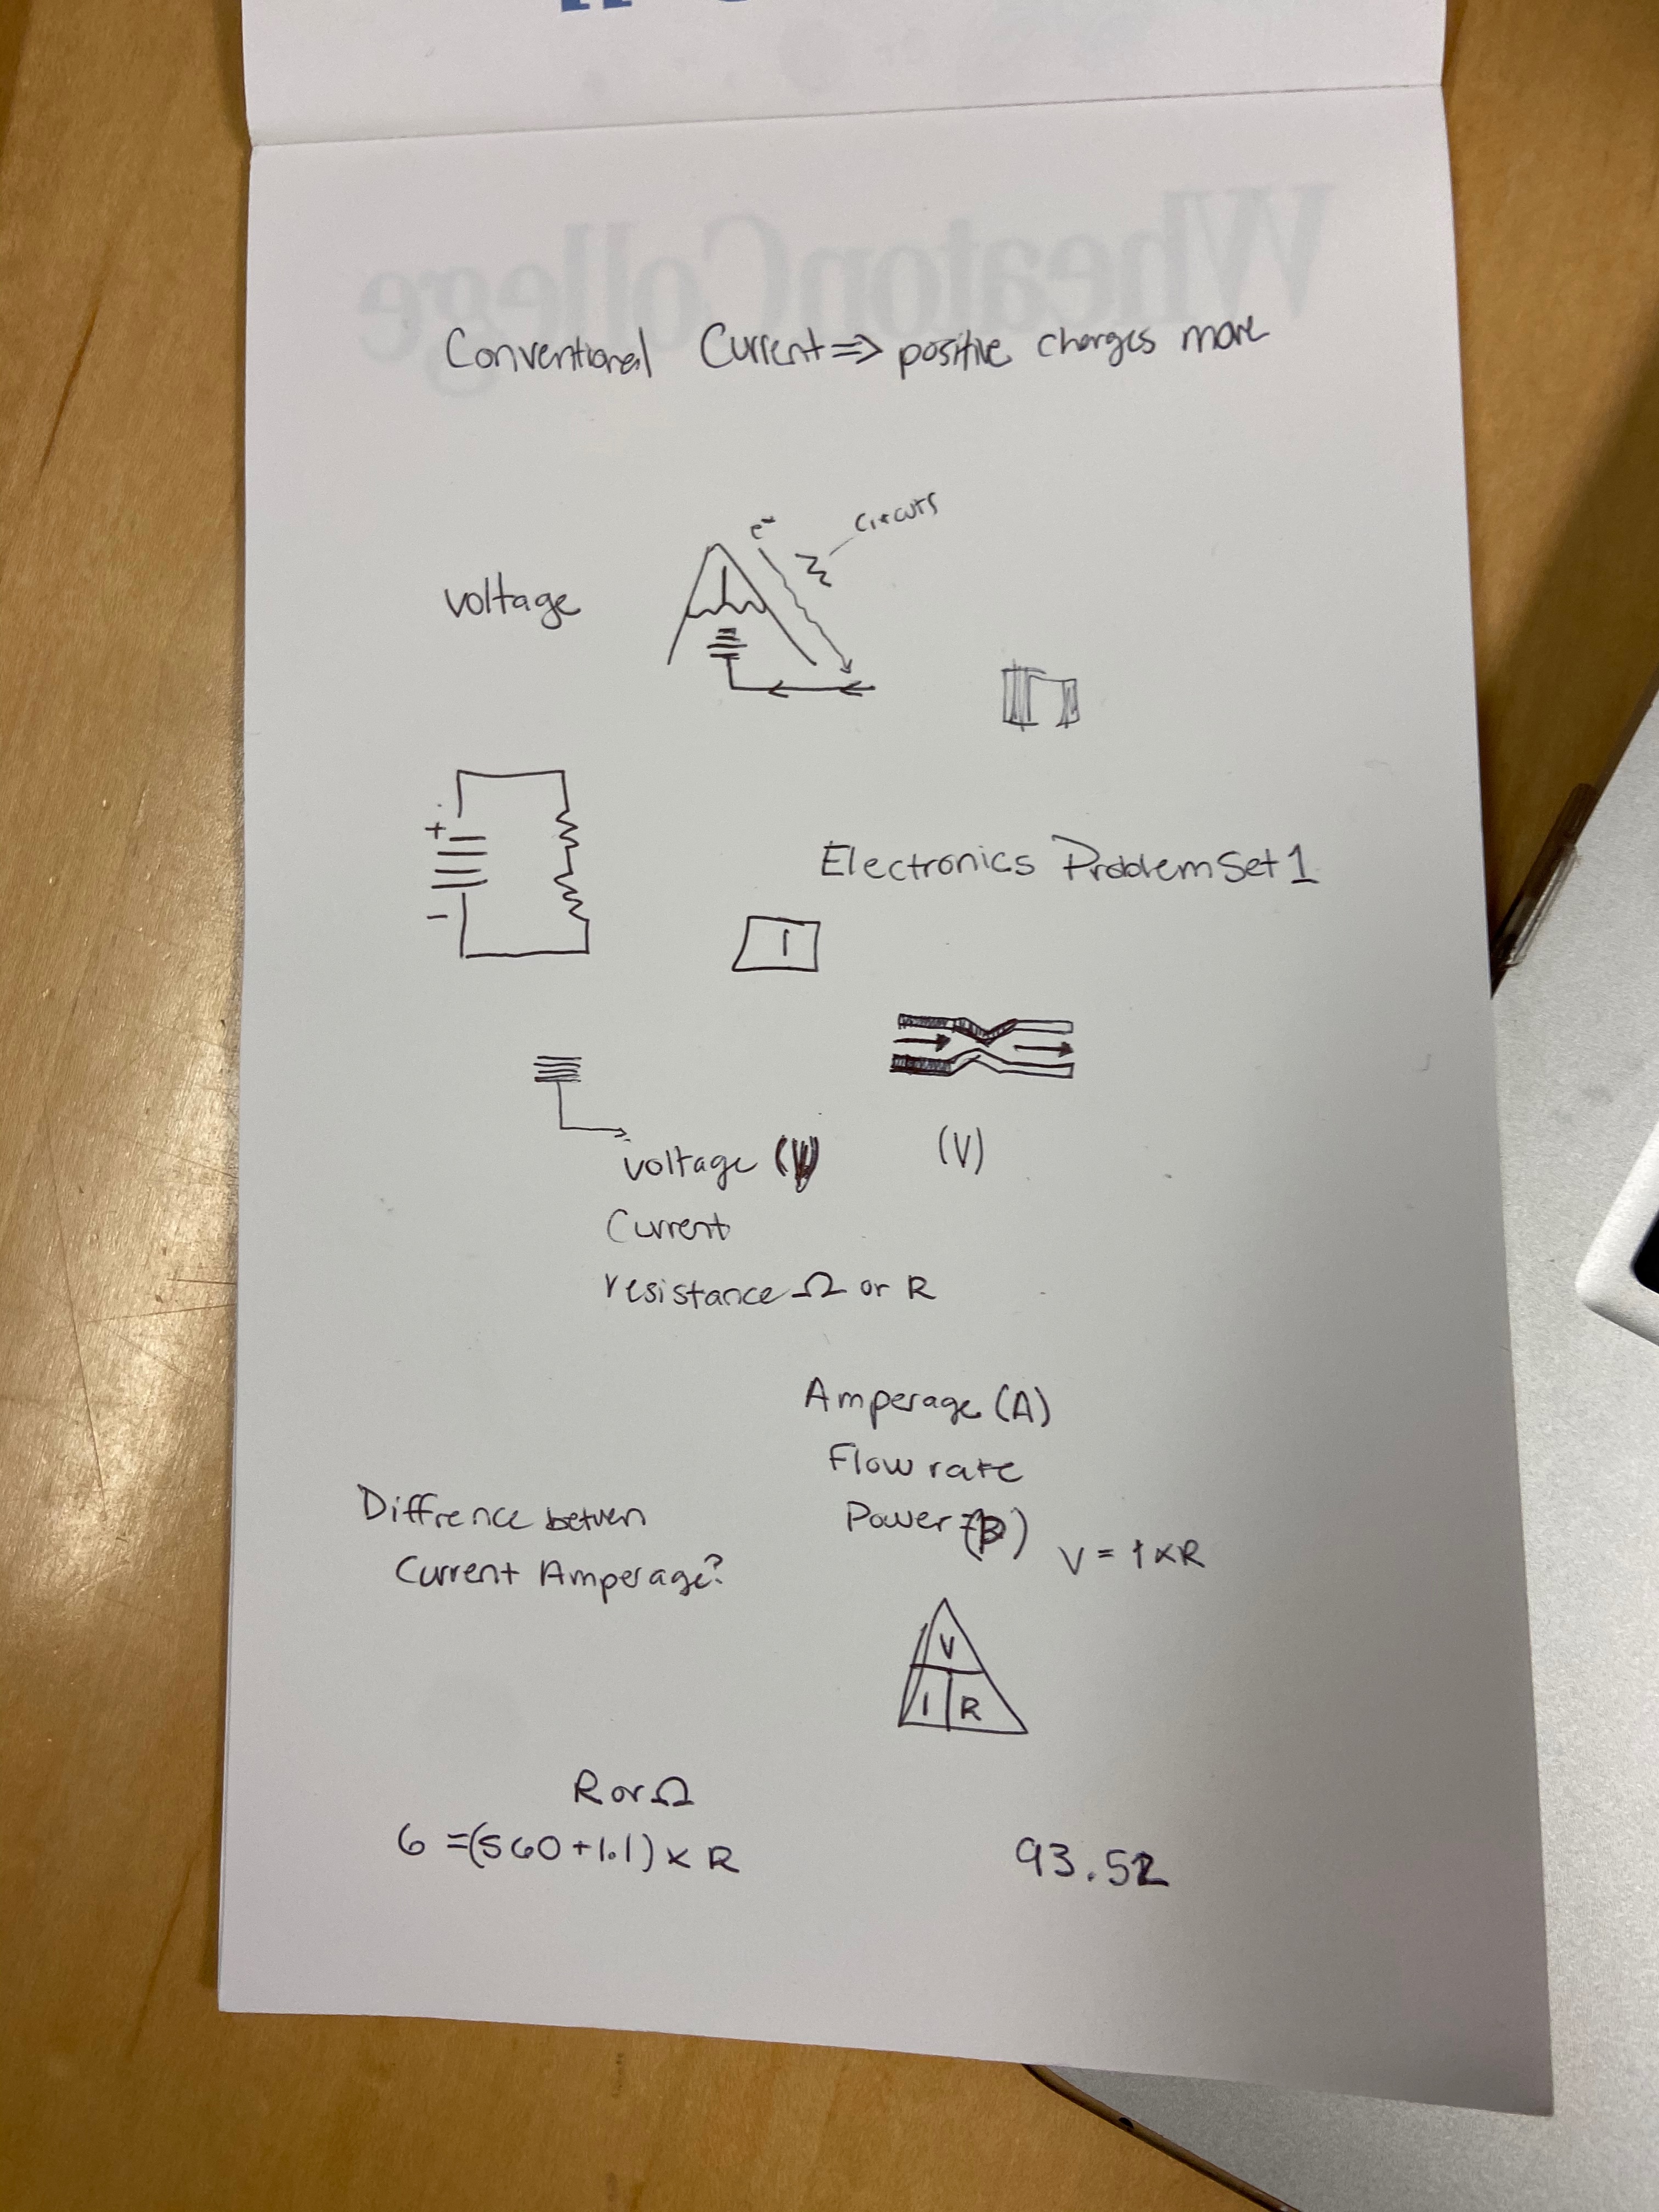 WheatonCollege
Conventional Current => positive charges move
e-
circuts
voltage
+
-
Electronics Problem Set 1
1
voltage (V)
(V)
Current
resistance Ω or R
Amperage (A)
Flow rate
Power (P)
Diffrence betwen
Current Amperage?
V = I x R
V
I R
R or Ω
6 = (560+1.1) x R
93.52